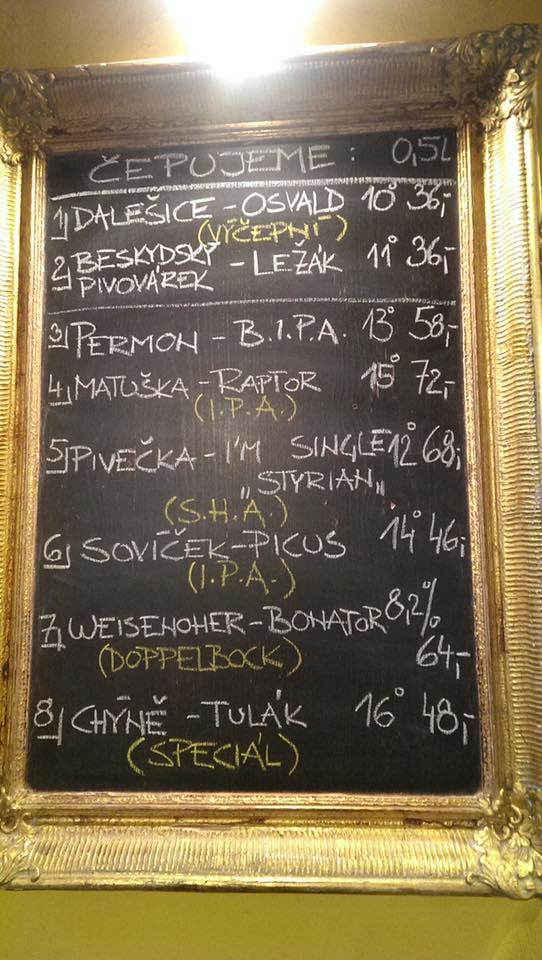 ČEPUJEME: 0,5L
1, DALEŠICE - OSVALD 10° 36,-
(VÝČEPNÍ)
2, BESKYDSKÝ PIVOVÁREK - LEŽÁK 11° 36,-
3, PERMON - B.I.P.A. 13° 58,-
4, MATUŠKA - RAPTOR 15° 72,-
(I.P.A.)
5, PIVEČKA - I'M SINGLE 12° 68,-
„STYRIAN„
(S.H.A.)
6, SOVÍČEK - PICUS 14° 46,-
(I.P.A.)
7, WEISENOHER - BONATOR 8,2%
64,-
(DOPPELBOCK)
8, CHÝNĚ - TULÁK 16° 48,-
(SPECIÁL)